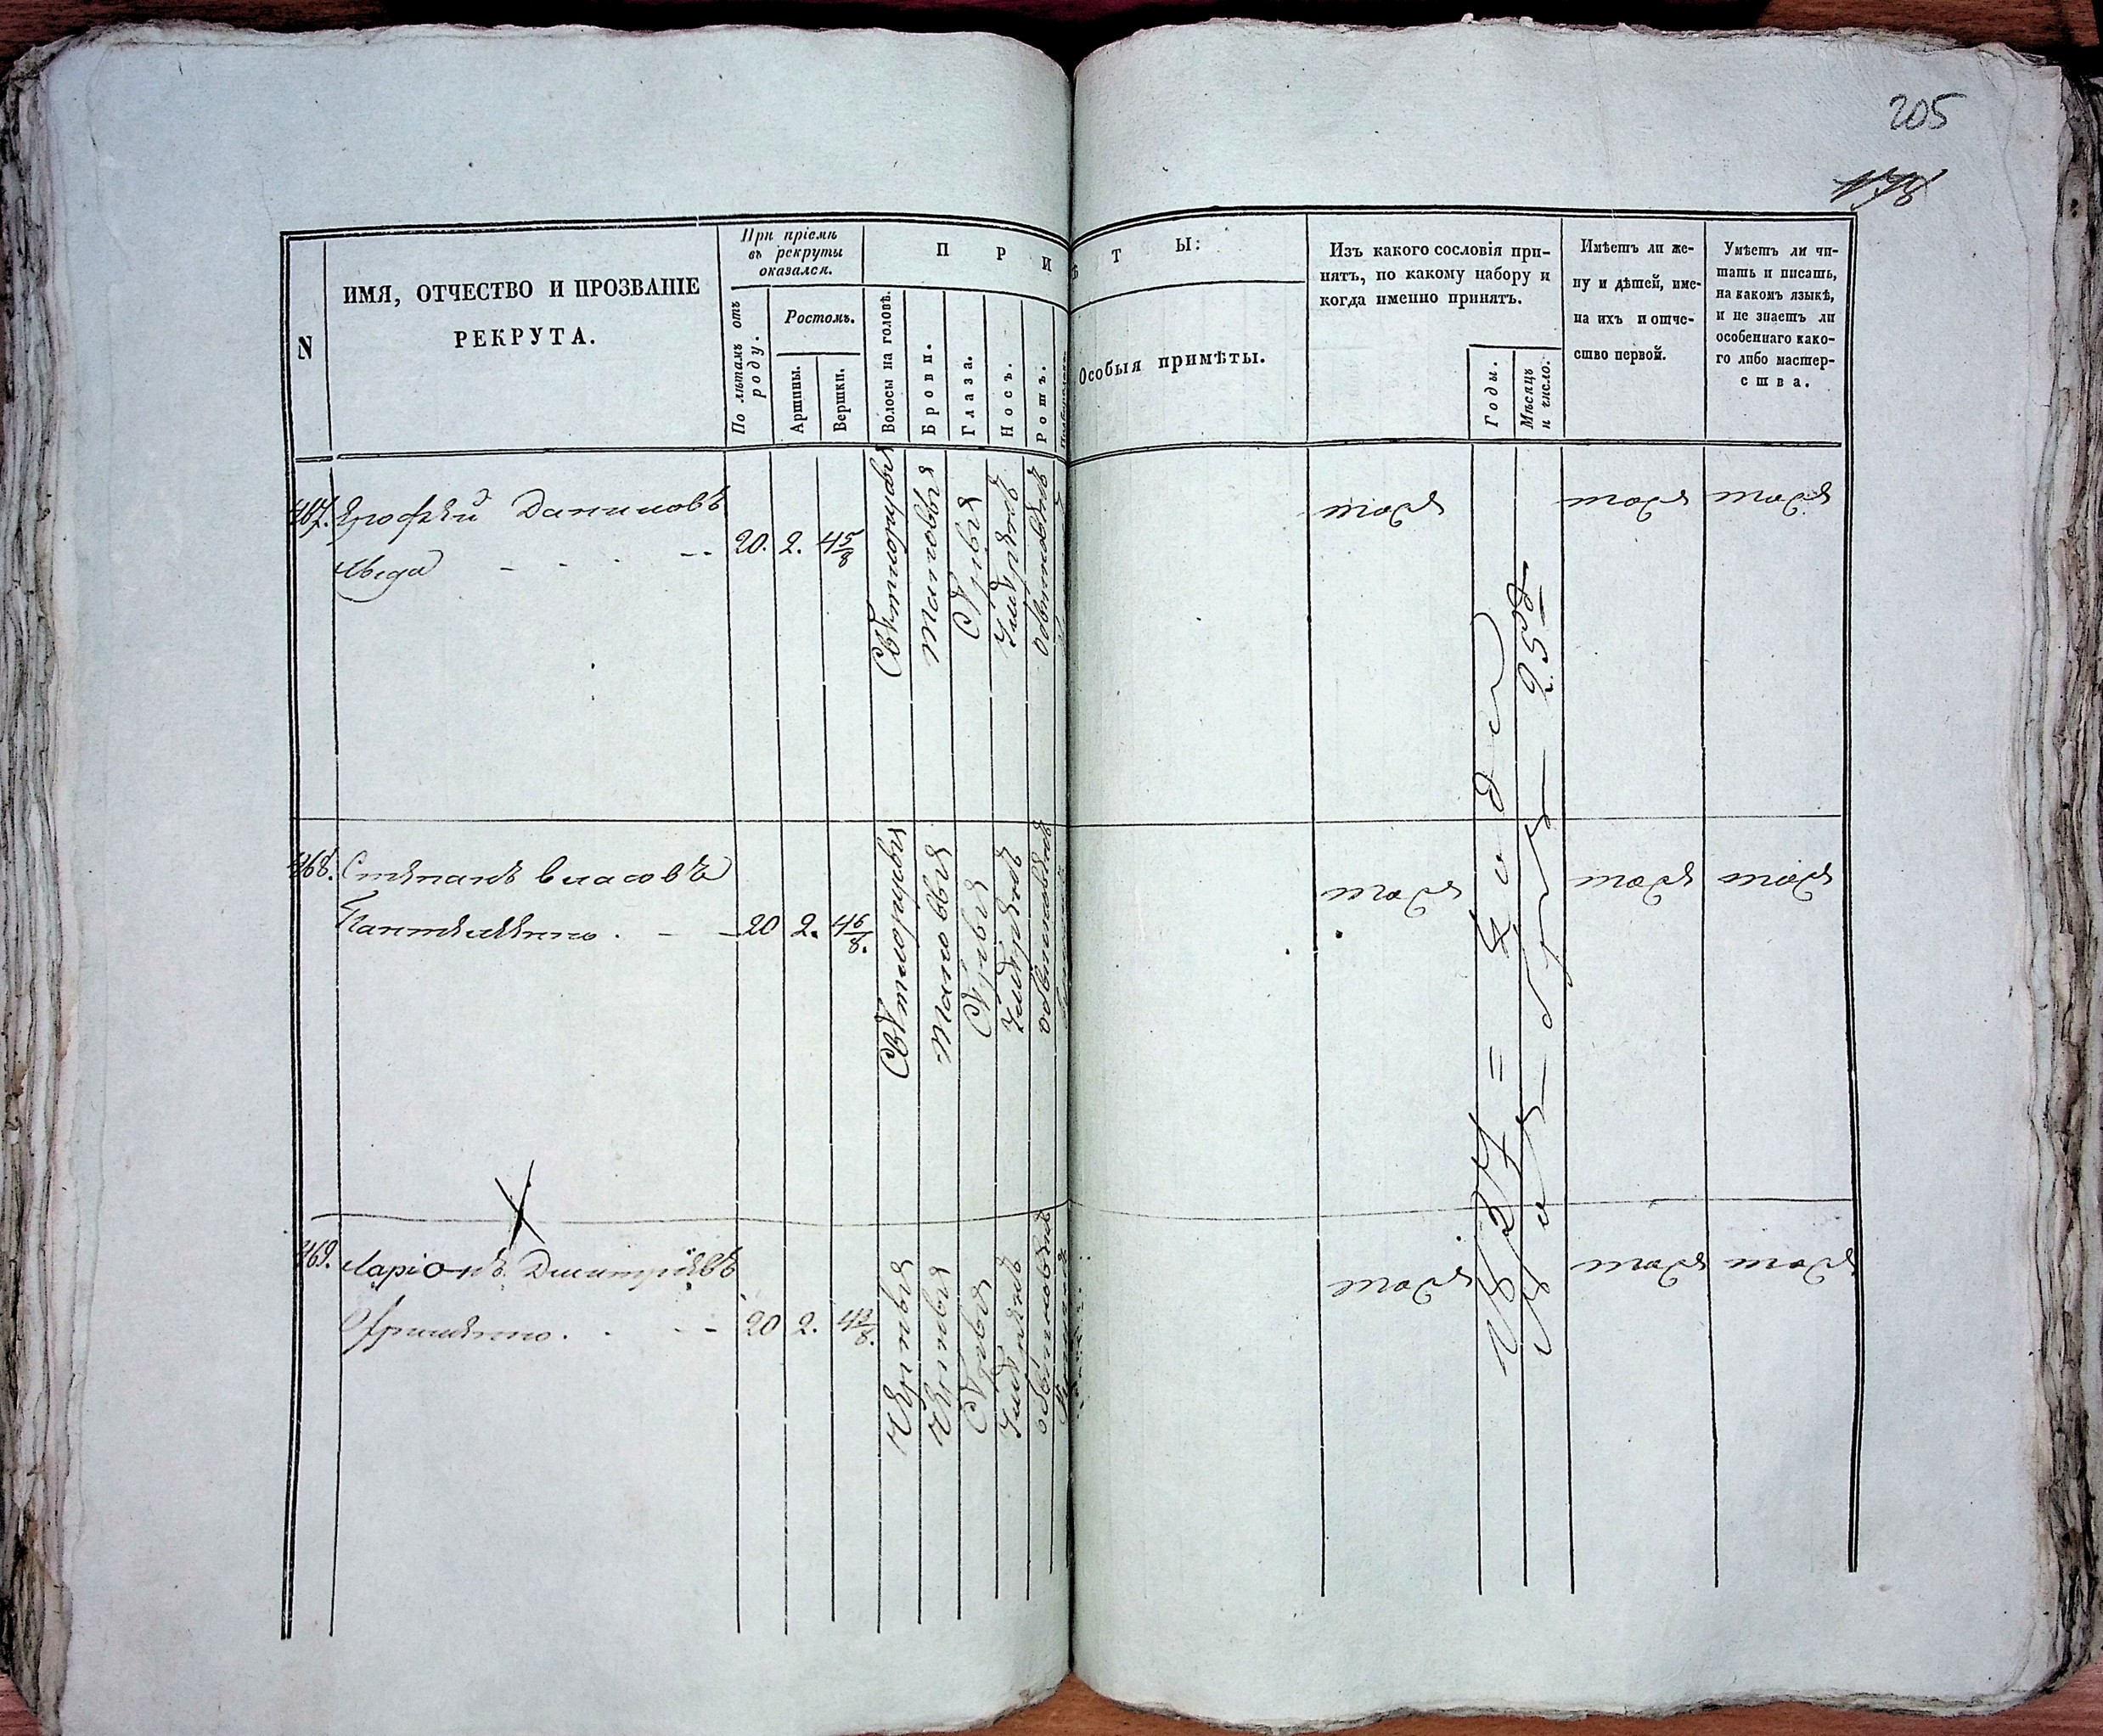 205
N
ИМЯ, ОТЧЕСТВО И ПРОЗВАНІЕ
РЕКРУТА.
При пріемѣ
въ рекруты
оказался.
По лѣтамъ отъ
роду.
Ростомъ.
Аршины.
Вершки.
П Р И
Ѣ Т Ы:
Волосы на головѣ.
Брови.
Глаза.
Носъ.
Ротъ.
Особыя примѣты.
Изъ какого сословія при-
нятъ, по какому набору и
когда именно принятъ.
Годы.
Мѣсяцъ
и число.
Имѣетъ ли же-
ну и дѣтей, име-
на ихъ и отче-
ство первой.
Умѣетъ ли чи-
тать и писать,
на какомъ языкѣ,
и не знаетъ ли
особеннаго како-
го либо мастер-
ства.
467. Ерофей Даниловъ
20. 2. 4 5/8
Светлорусыя
таковыя
Серыя
Умеренъ
обыкновенъ
тоже
тоже
тоже
468. Степанъ Власовъ
Пантеленко . 20 2. 4 6/8.
Светлорусыя
таковыя
Серыя
Умеренъ
обыкновенъ
тоже
тоже
тоже
469. Ларіонъ Дмитріевъ
20 2.
Черныя
Черныя
Серыя
Умеренъ
обыкновенъ
тоже
тоже
тоже
1837 = года
25го